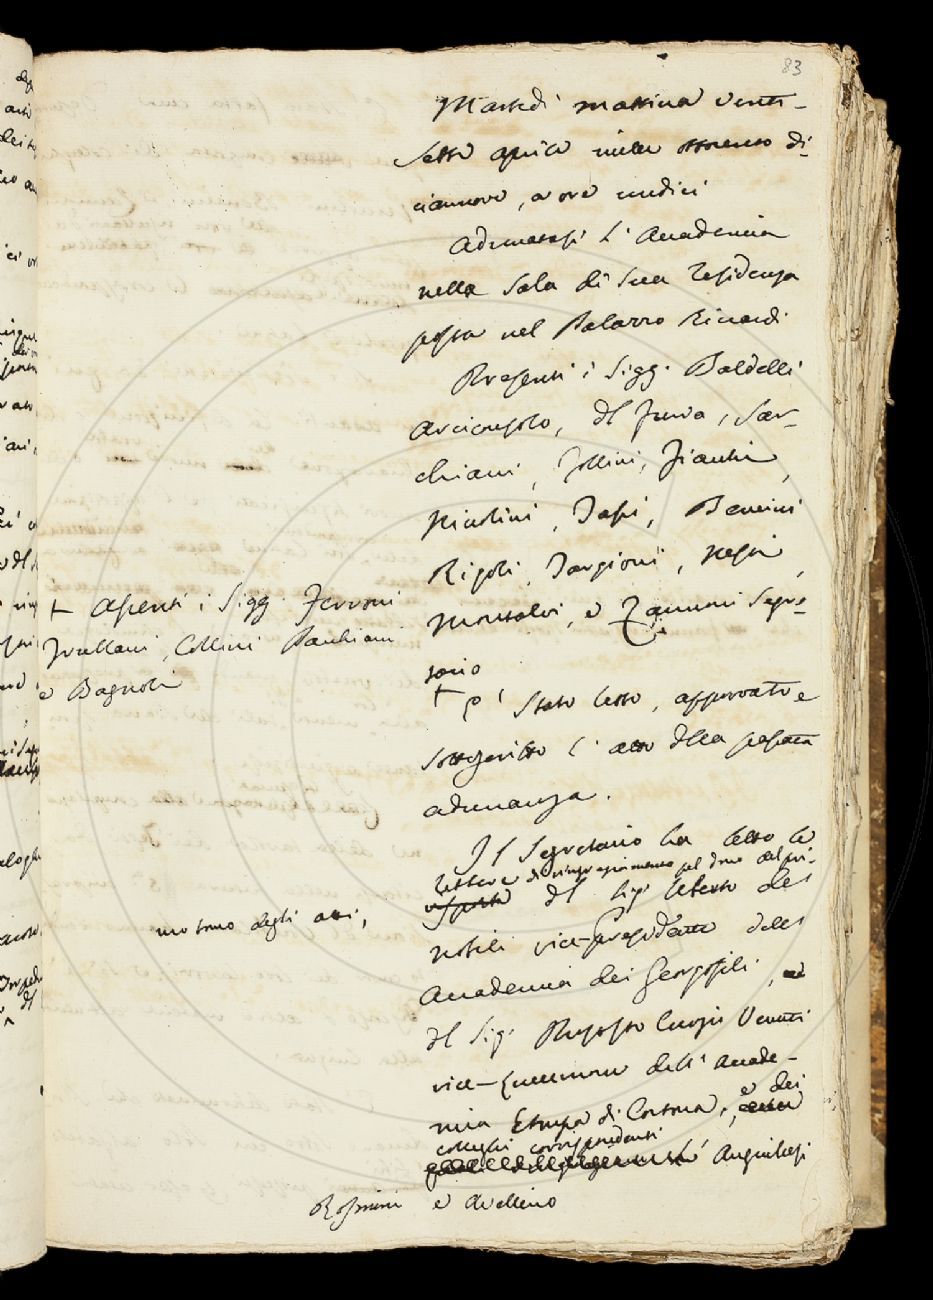 83
Martedì mattina venti-
sette aprile mille ottocento di-
ciannove, a ore undici
Adunatasi l'Accademia
nella Sala di Sua residenza
posta nel Palazzo Riccardi
Presenti i Sigg. Baldelli
Arciconsolo, del Furia, Sar-
chiani, Follini, Fiacchi,
Niccolini, Tassi, Bencini
Rigoli, Targioni, Nesti,
Montalvi, e Zannoni Segre-
tario
+ Assenti i Sigg. Ferroni
Frullani, Collini Pacchiani
e Bagnoli
+ E' Stato letto, approvato e
sottoscritto l'atto della passata
adunanza.
Il Segretario ha letto le
lettere di ringraziamento pel dono del pri-
risposte del Sig. Uberto de'
mo tomo degli atti,
Nobili vice-presidente dell'
Accademia dei Georgofili,
del Sig. Proposto Curzio Venuti
vice-Lucumone dell'Accade-
mia Etrusca di Cortona, e dei
colleghi corrispondenti
Anguillesi
Rosmini e Avellino